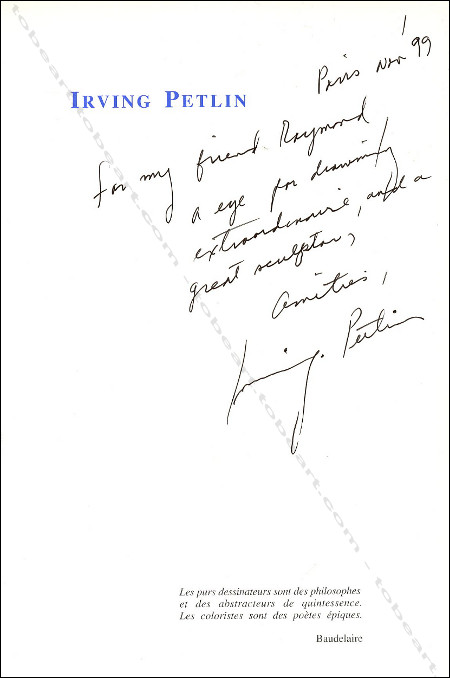 Paris Nov '99
IRVING PETLIN
For my friend Raymond
a eye for drawing
extraordinaire, and a
great sculptor,
Amitiés,
Irving Petlin
Les purs dessinateurs sont des philosophes
et des abstracteurs de quintessence.
Les coloristes sont des poètes épiques.
Baudelaire
tobeart-tobeart-tobeart-tobeart-tobeart-tobeart